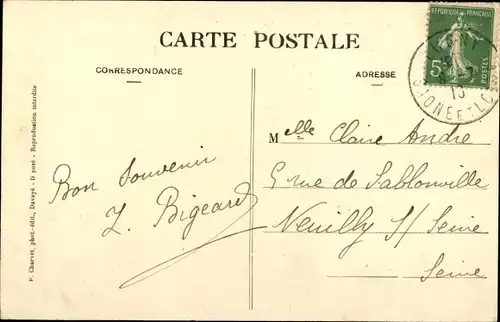 CARTE POSTALE
CORRESPONDANCE
ADRESSE
REPUBLIQUE FRANÇAISE
5c
POSTES
SAONE-ET-L
Melle Claire André
5 rue de Sablonville
Neuilly s/ Seine
Seine
Bon Souvenir
L. Bigeard
P. Charvet, phot.-édit., Davayé - D posé - Reproduction interdite